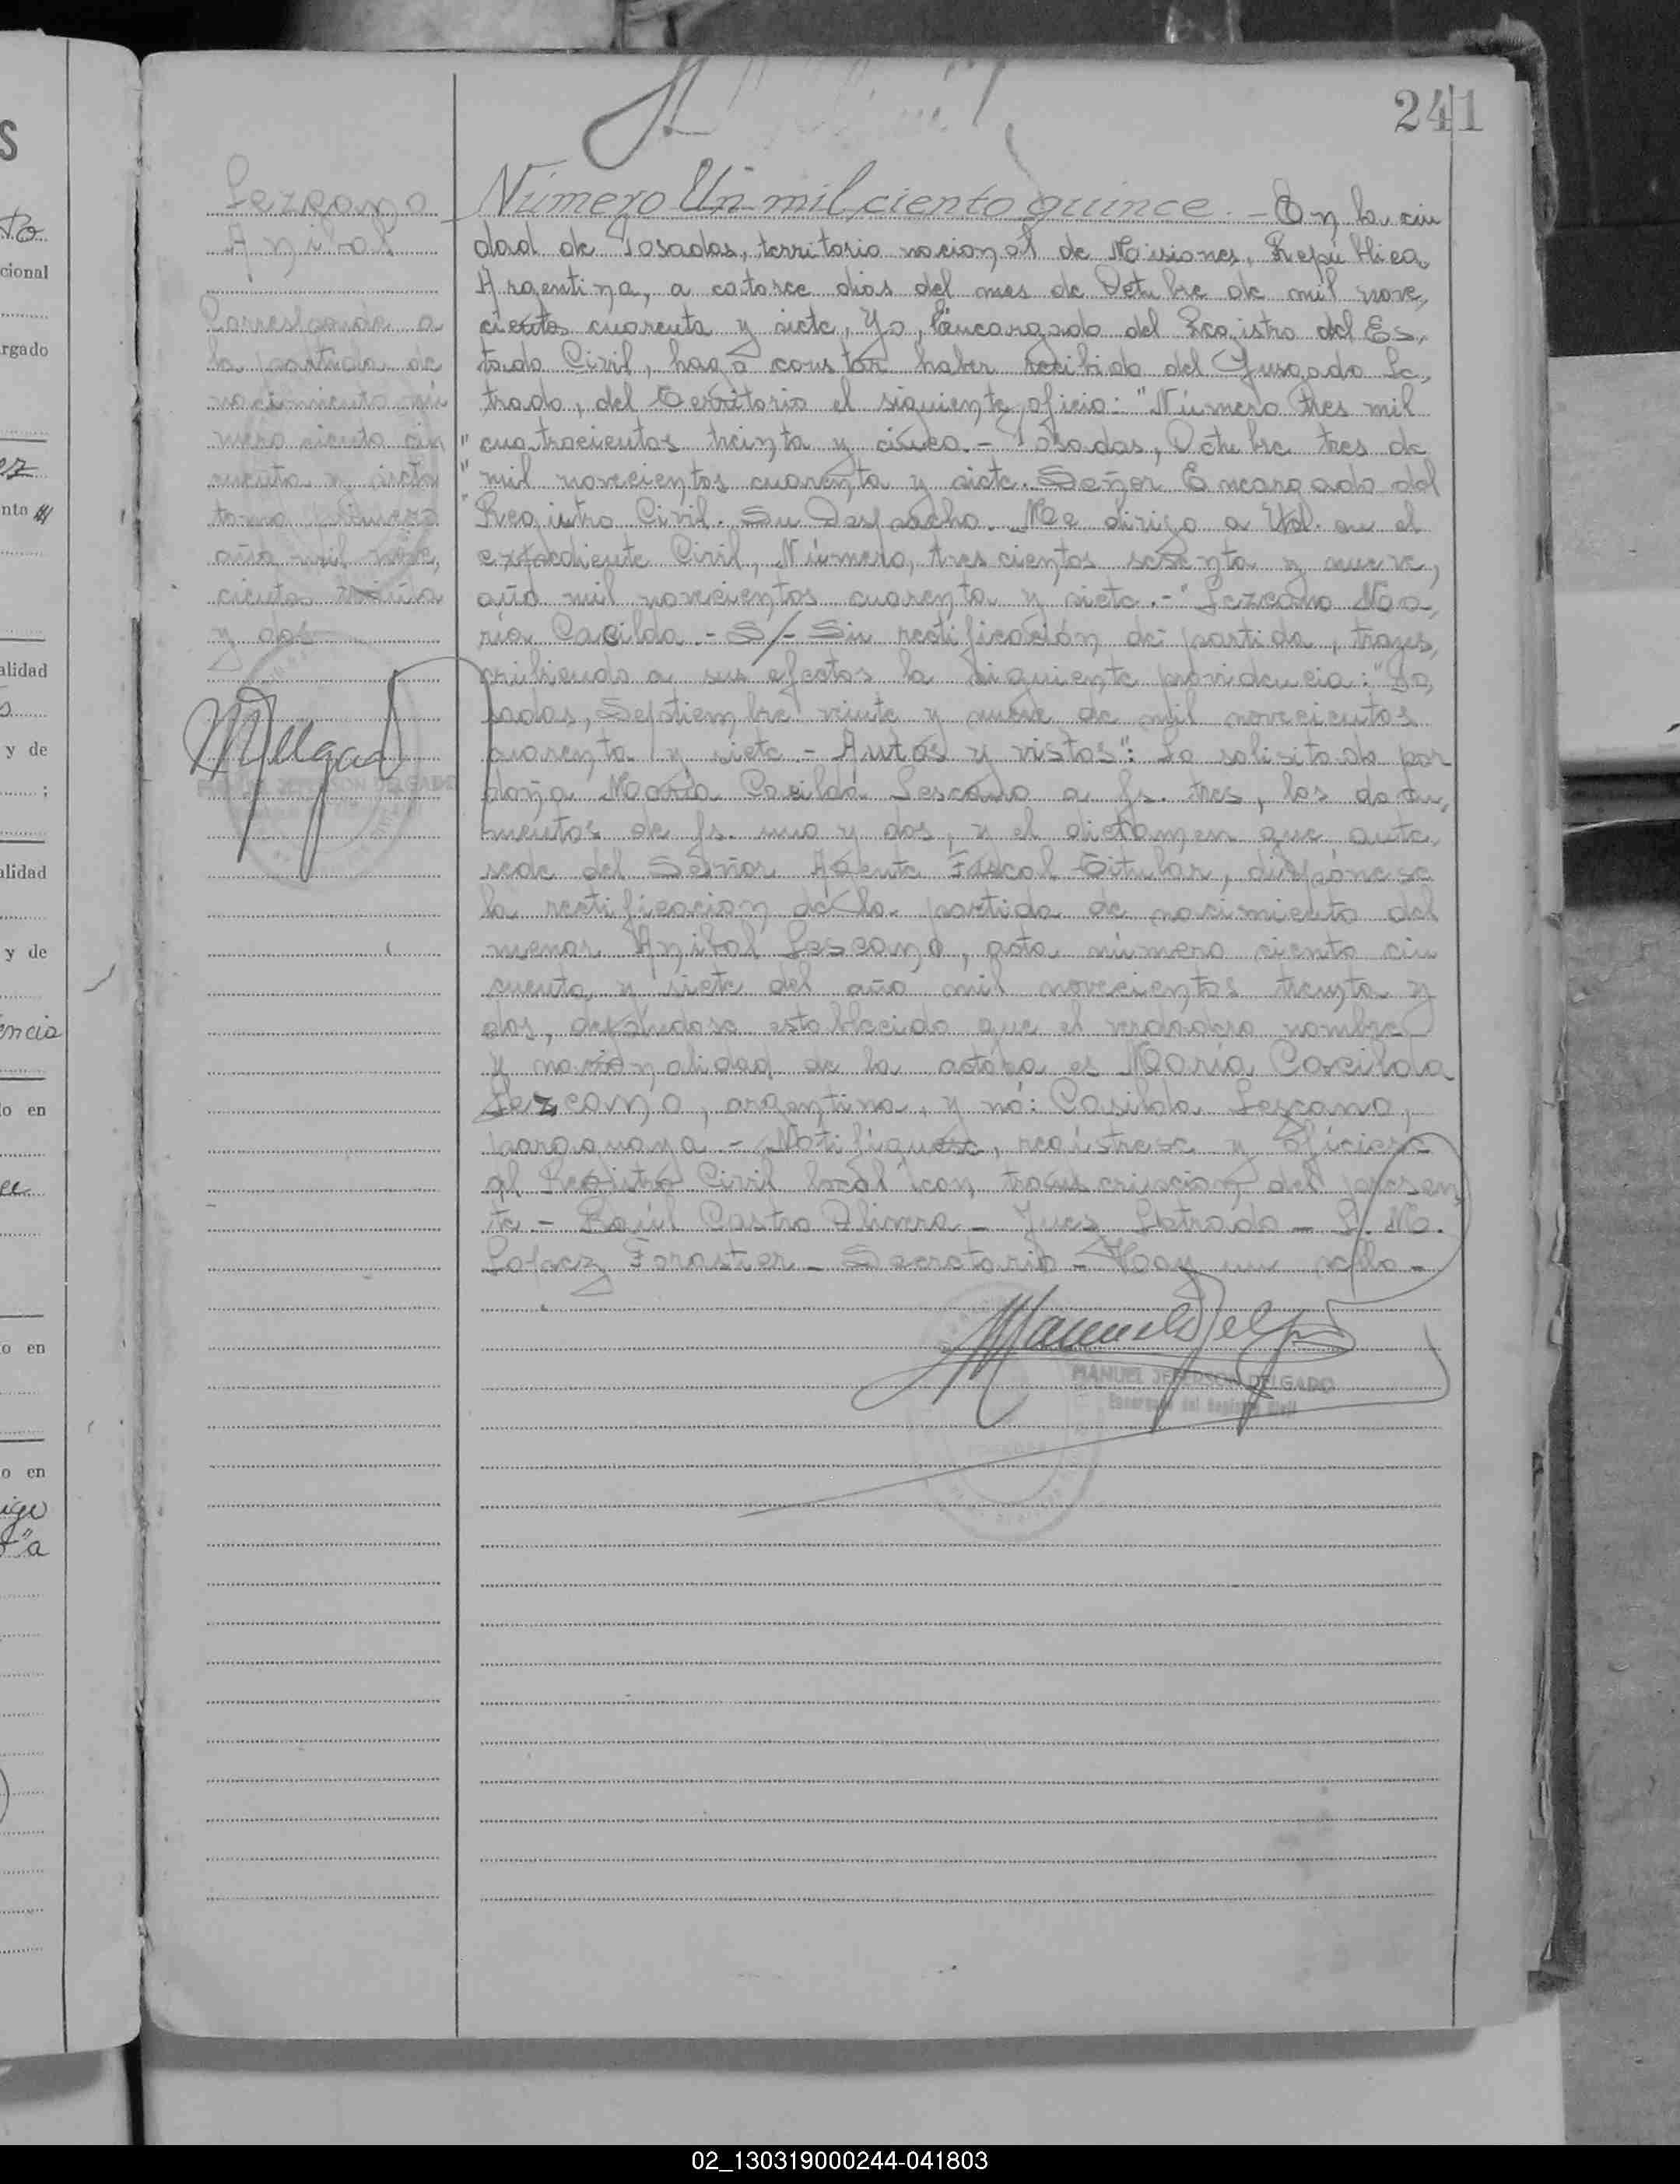 241
Lezcano
Anibal
Corresponde a
la partida de
nacimiento nú
mero ciento cin
cuenta y siete
tomo primero
año mil nove,
cientos treinta
y dos
MDelgado
MANUEL JEFERSON DELGADO
Número Un mil ciento quince. - En la ciu
dad de Posadas, territorio nacional de Misiones, República
Argentina, a catorce dias del mes de Octubre de mil nove,
cientos cuarenta y siete, Yo, Encargado del Registro del Es,
tado Civil, hago constar haber recibido del Jusgado Le,
trado, del Territorio el siguiente oficio: "Número tres mil
" cuatrocientos treinta y cinco. - Posadas, Octubre tres de
" mil novecientos cuarenta y siete. Señor Encargado del
" Registro Civil. Su Despacho. Me dirijo a Ud. en el
expediente Civil, Número, trescientos sesenta y nueve,
año mil novecientos cuarenta y siete. - "Lezcano Ma,
ría Casilda. - S/- Su rectificación de partida, trans,
cribiendo a sus efectos la siguiente providencia: "Po,
sadas, Septiembre veinte y nueve de mil novecientos
cuarenta y siete. - Autos y vistos": Lo solisitado por
doña María Casilda Lescano a fs. tres, los docu,
mentos de fs. uno y dos, y el dictamen que ante,
sede del Señor Agente Fiscal Titular, dispónese
la rectificacion de la partida de nacimiento del
menor Anibal Lescano, acta número ciento cin
cuenta y siete del año mil novecientos treinta y
dos, dejándose establecido que el verdadero nombre
y nacionalidad de la actora es María Cacilda
Lezcano, argentina, y nó: Casilda Lescano,
paraguaya. - Notifiquese, registrese y ofíciese
al Registro Civil local con transcripcion del presen
te - Raúl Castro Olivera - Jues Letrado - L. M.
Lopez Foraster - Secretario - Hay un sello -
Manuel J Delgado
MANUEL JEFERSON DELGADO
Encargado del Registro Civil
S
cional
rgado
nto
alidad
y de
alidad
y de
encia
o en
o en
o en
02_130319000244-041803